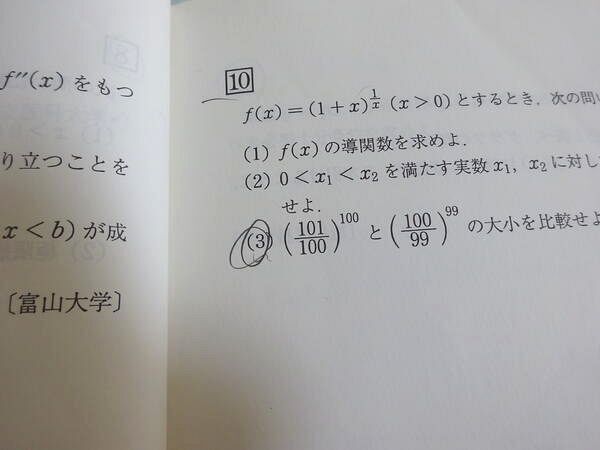 f''(x) をもつ
り立つことを
x < b) が成
〔富山大学〕
10
f(x) = (1+x)^{\frac{1}{x}} (x > 0) とするとき，次の問い
(1) f(x) の導関数を求めよ．
(2) 0 < x₁ < x₂ を満たす実数 x₁, x₂ に対し
せよ．
(3) (101/100)^100 と (100/99)^99 の大小を比較せよ